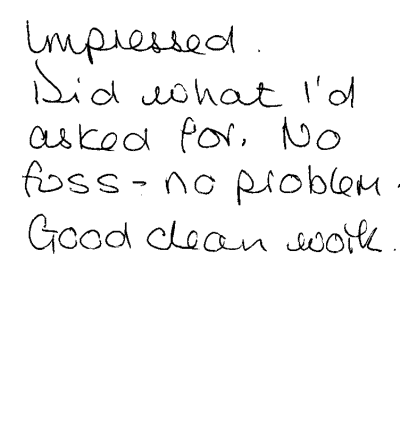 Impressed.
Did what I'd
asked for. No
fuss - no problem.
Good clean work.